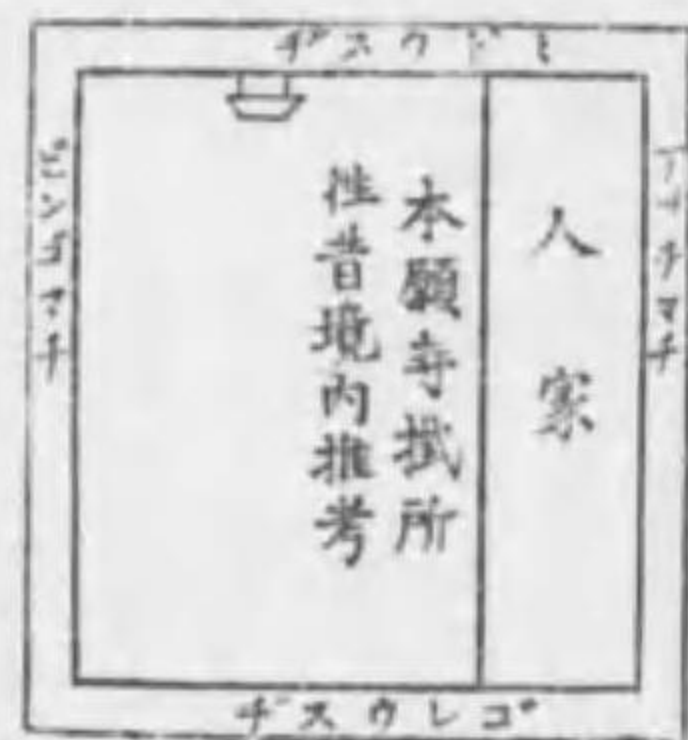 ミドウスヂ
アヅチマチ
人家
本願寺掛所
往昔境内推考
ビンゴマチ
ゴレウスヂ